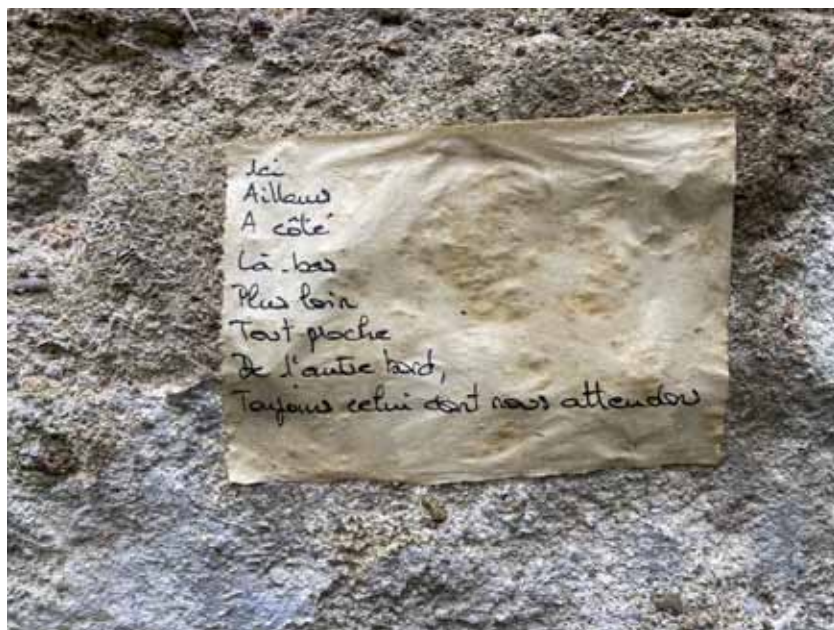 Ici
Ailleurs
A côté
Là-bas
Plus loin
Tout proche
De l'autre bord,
Toujours celui dont nous attendons